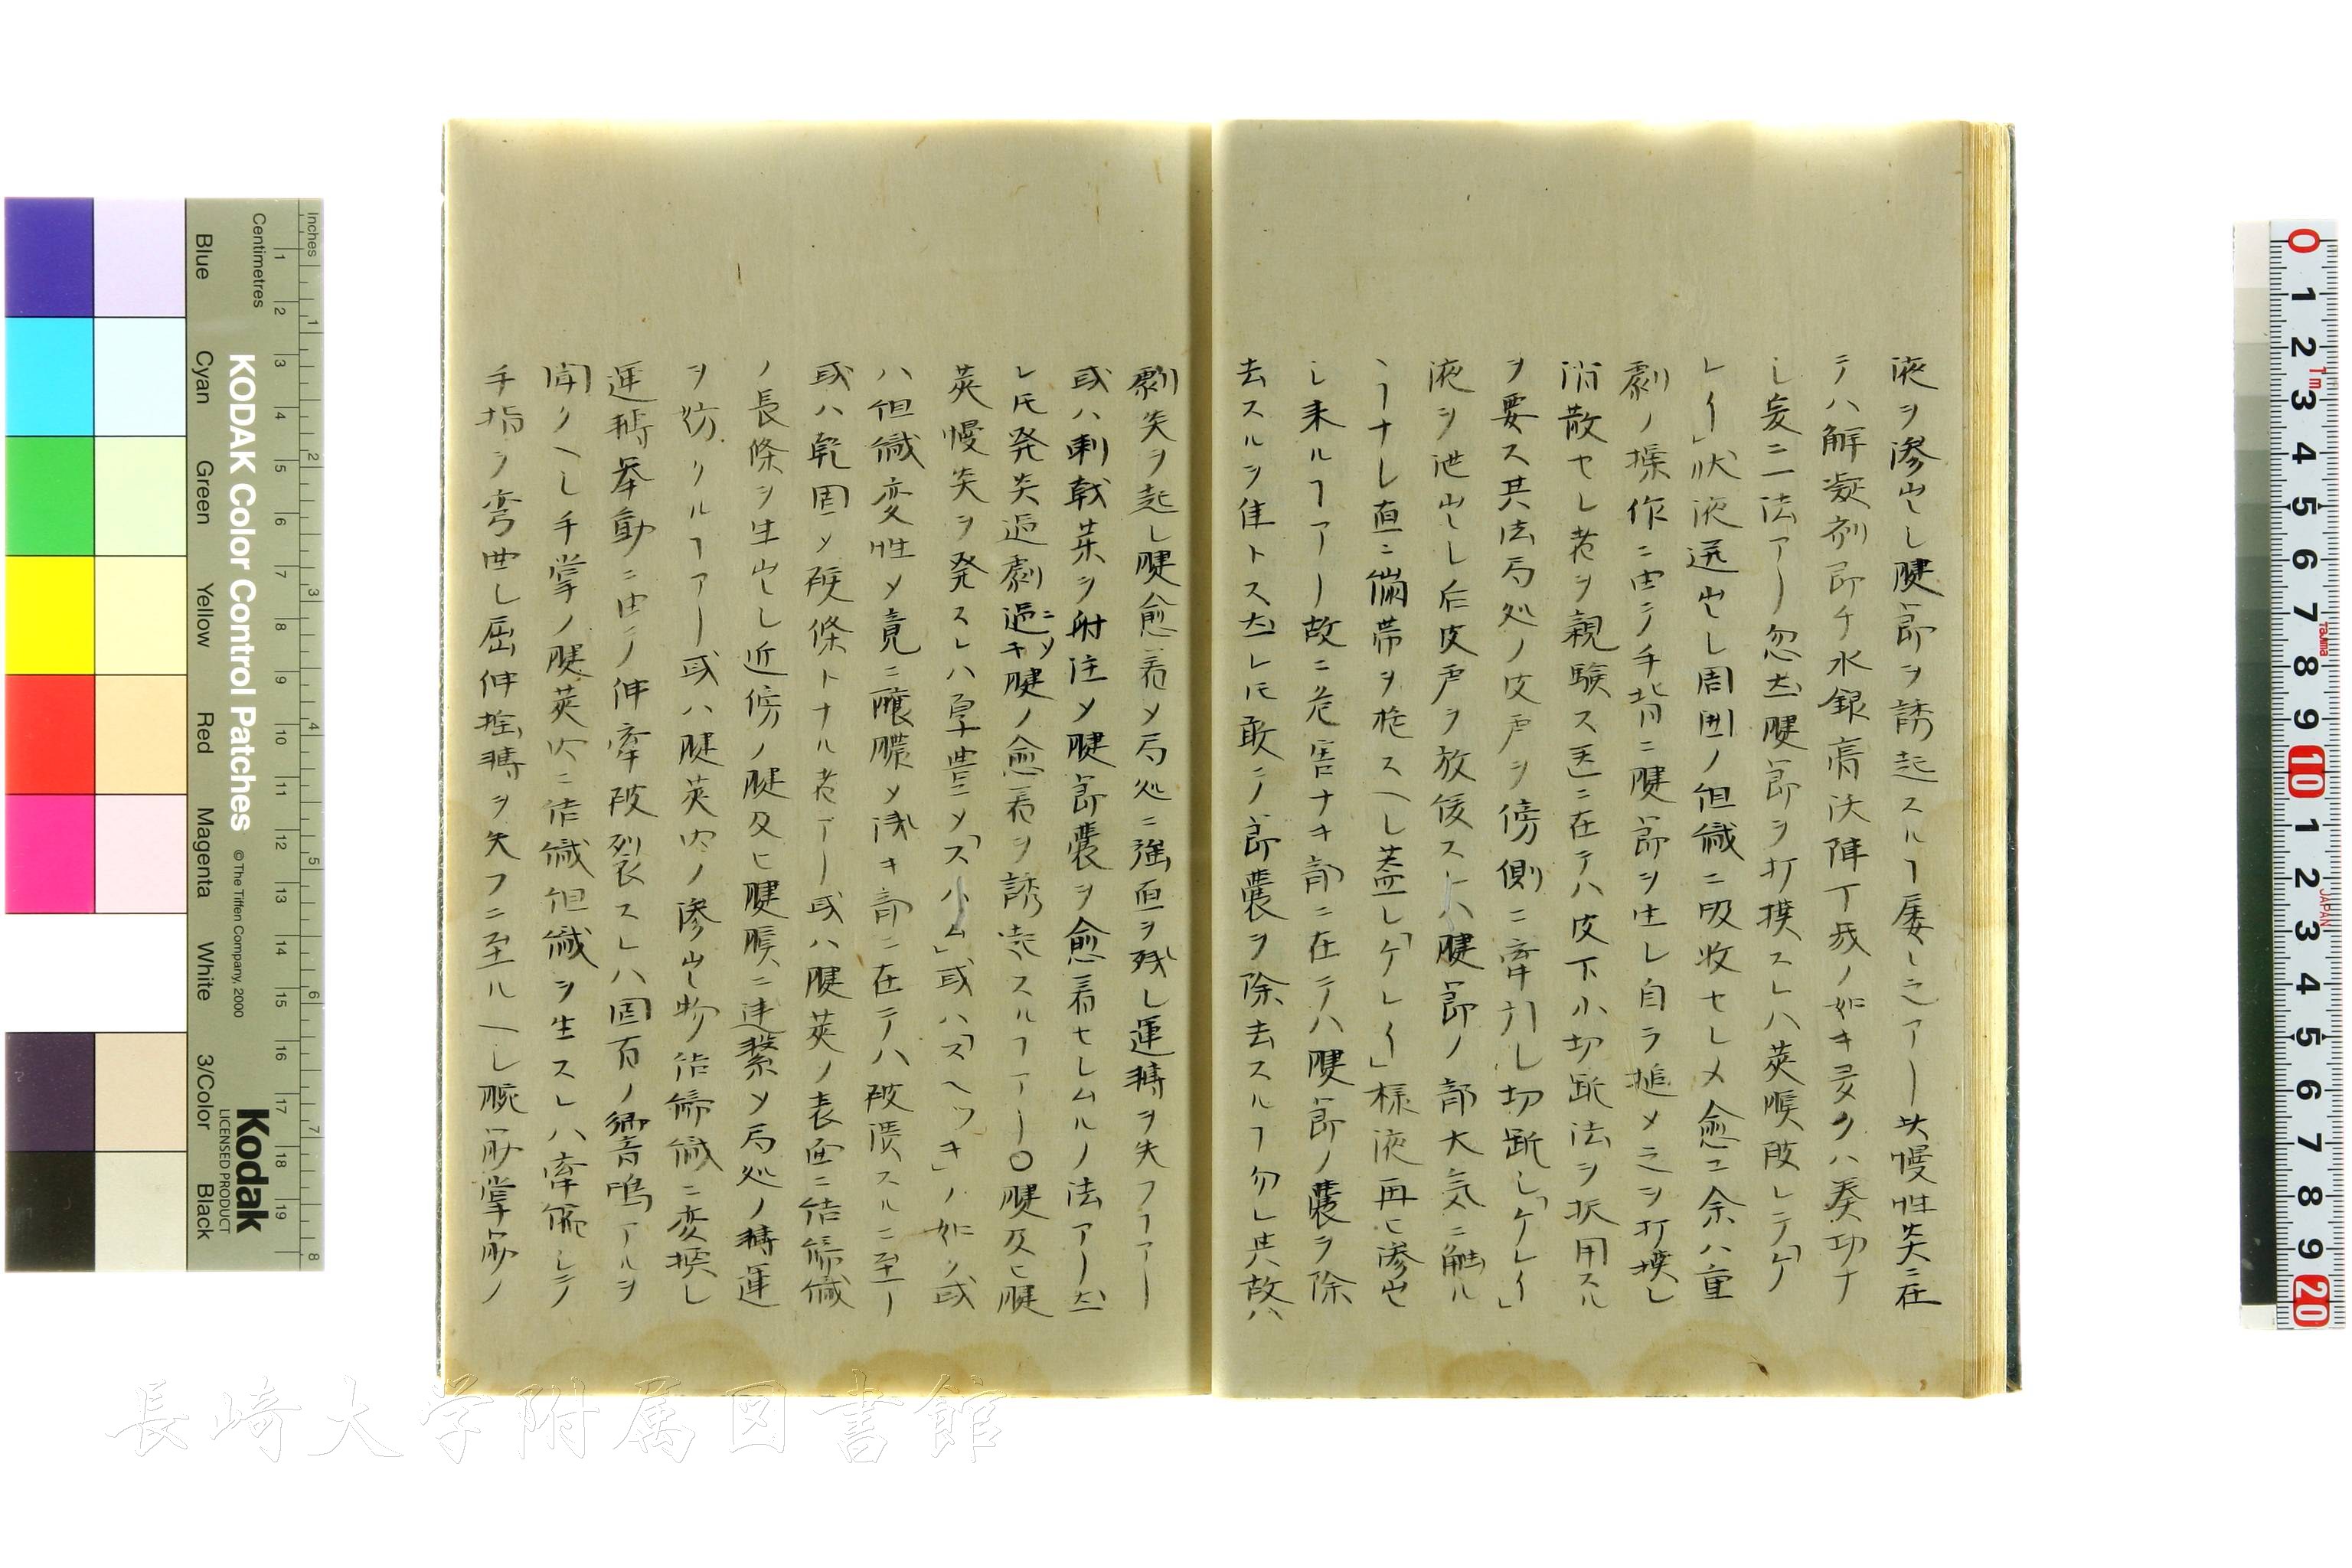 液ヲ滲出シ腱節ヲ誘起スルヿ屡〻之アリ其慢性炎ニ在
テハ解凝剤即チ水銀膏沃陣丁幾ノ如キ多クハ奏功ナ
シ爰ニ二法アリ忽然腱節ヲ打撲スレハ莢膜破レテ「ケ
レイ」状液迸出シ周囲ノ組織ニ吸收セシメ愈ユ余ハ重
劇ノ操作ニ由テ手背ニ腱節ヲ生シ自ラ槌メ之ヲ打撲シ
消散セシ者ヲ親験ス医ニ在テハ皮下小切断法ヲ採用スル
ヲ要ス其法局処ノ皮戸ヲ傍側ニ牽引シ切断シ「ケレイ」
液ヲ泄出シ后皮戸ヲ放後スレハ腱節ノ部大気ニ触ル
ヽヿナシ直ニ繃帯ヲ施スヘシ蓋シ「ケレイ」様液再ヒ滲出
シ来ルヿアリ故ニ危害ナキ部ニ在テハ腱節ノ嚢ヲ除
去スルヲ佳トス然レ𪜈敢テ節嚢ヲ除去スルヿ勿レ其故ハ
劇炎ヲ起シ腱愈着メ局処ニ強直ヲ残シ運轉ヲ失フヿアリ
或ハ刺戟薬ヲ射注メ腱節嚢ヲ愈着セシムルノ法アリ然
レ𪜈発炎過劇ニメ過キ腱ノ愈着ヲ誘起スルヿアリ○腱及ヒ腱
莢慢炎ヲ発スレハ厚豊メ「スハム」或ハ「スヘッキ」ノ如ク或
ハ組織変性メ竟ニ醸膿メ浅キ部ニ在テハ破潰スルニ至リ
或ハ乾固メ硬條トナル者アリ或ハ腱莢ノ表面ニ結締織
ノ長條ヲ生出シ近傍ノ腱及ヒ腱膜ニ連繋メ局処ノ轉運
ヲ妨クルヿアリ或ハ腱莢内ノ滲出物結締織ニ変換シ
運轉挙動ニ由テ伸牽破裂スレハ固有ノ響鳴アルヲ
聞クヘシ手掌ノ腱莢内ニ結織組織ヲ生スレハ牽縮シテ
手指ヲ弯曲シ屈伸捻轉ヲ失フニ至ルヘシ腕筋掌筋ノ
Inches
Centimetres
KODAK Color Control Patches
© The Tiffen Company, 2000
Kodak
LICENSED PRODUCT
Blue
Cyan
Green
Yellow
Red
Magenta
White
3/Color
Black
長崎大学附属図書館